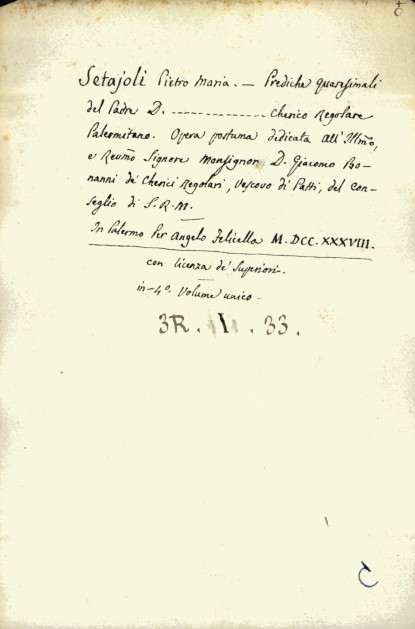 Setajoli Pietro Maria. — Prediche quaresimali
del Padre D. ------------- Cherico Regolare
Palermitano. Opera postuma dedicata all'Illmo,
e Revmo Signore Monsignor D. Giacomo Bo-
nanni de' Cherici Regolari, Vescovo di Patti, del con-
seglio di S. R. M.
In Palermo Per Angelo Felicella M. DCC. XXXVIII.
con licenza de' Superiori.
in-4º. Volume unico -
3R. I. 33.